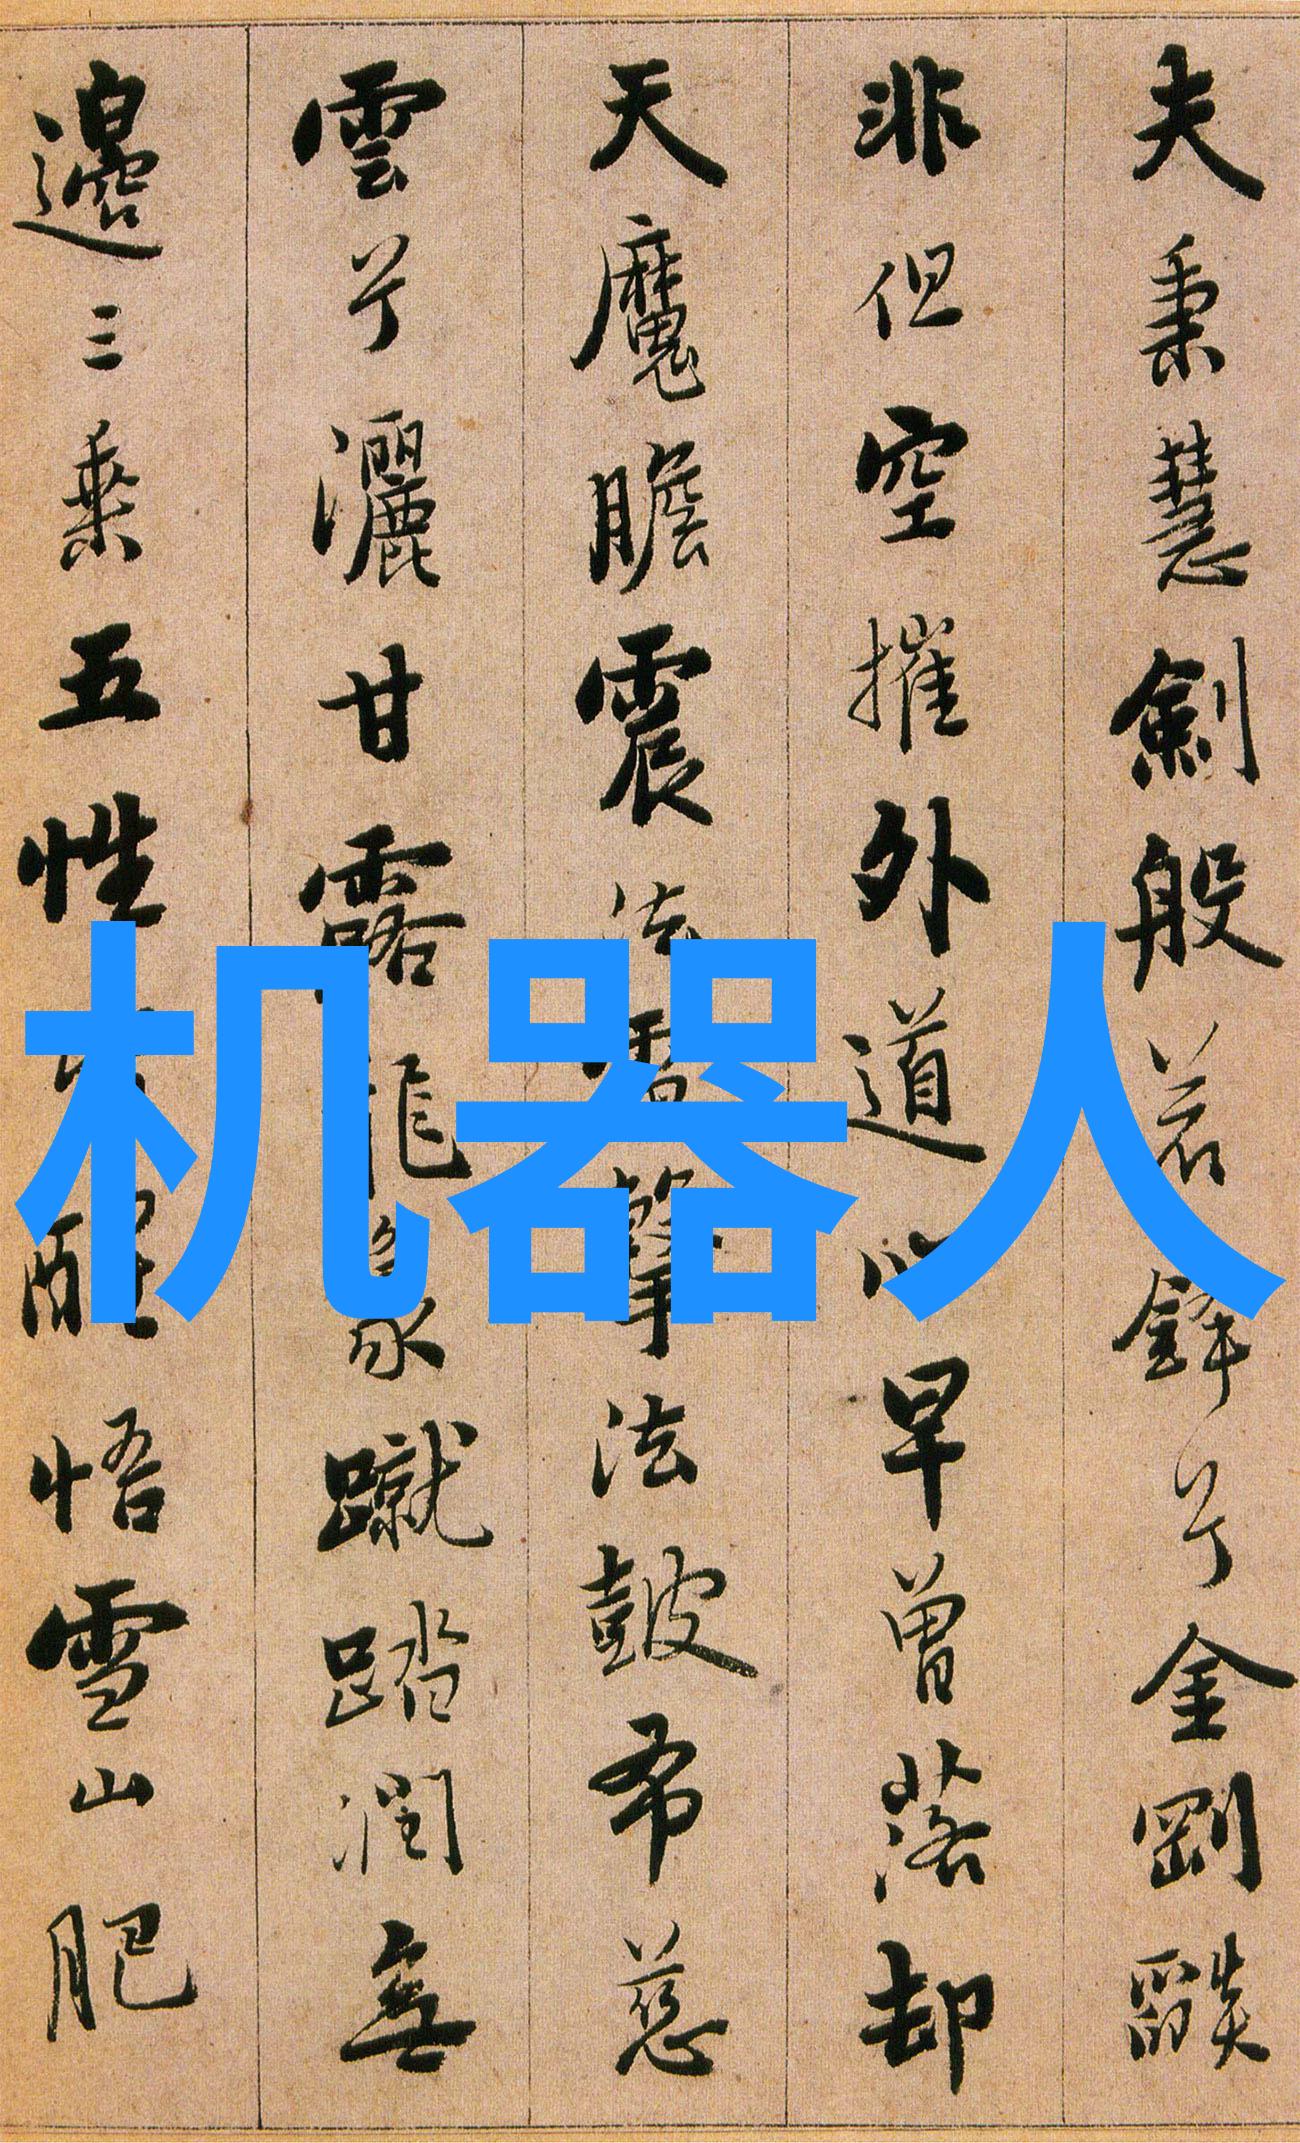 夫秉慧劍般若鋒兮金剛燄
非但空摧外道心早曾落却
天魔膽震法雷擊法鼓布慈
雲兮灑甘露龍象蹴踏潤無
邊三乘五性皆醒悟雪山肥
机器人